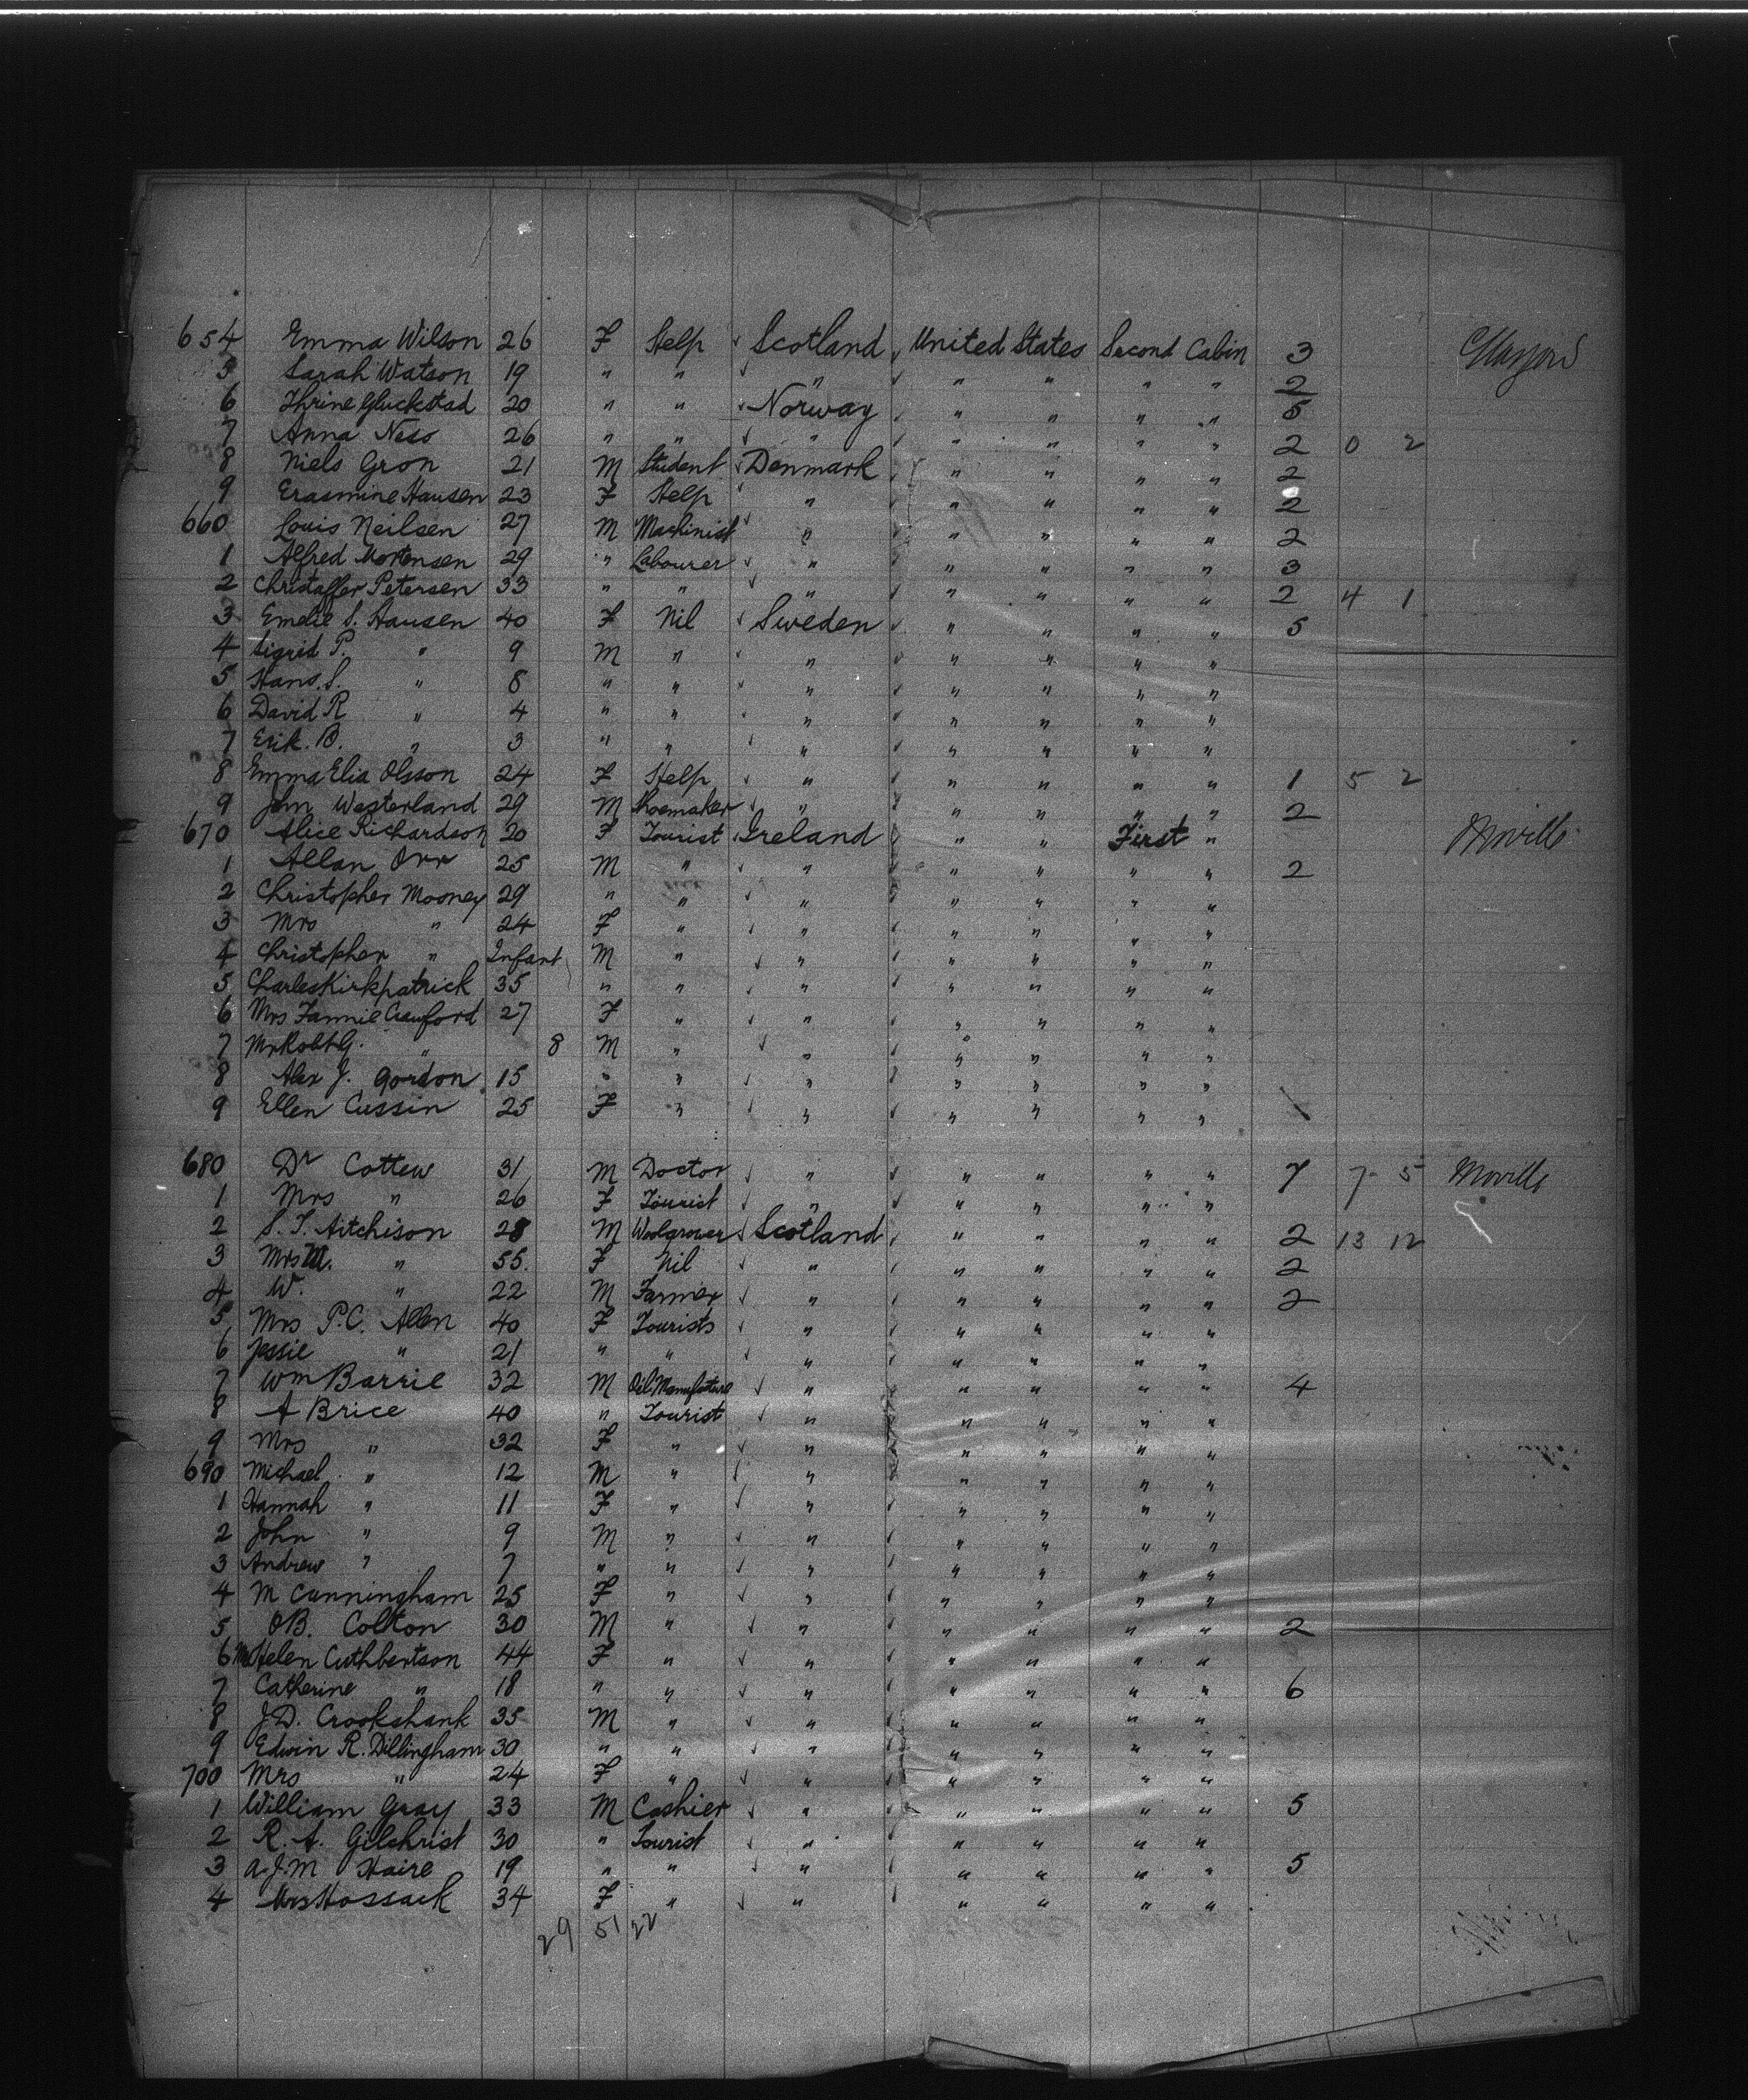 654 Emma Wilson 26 F Help Scotland United States Second Cabin 3 Glasgow
5 Sarah Watson 19 " " " " " " " 2
6 Thrine Gluckstad 20 " " Norway " " " " 5
7 Anna Ness 26 " " " " " " " 2 0 2
8 Niels Gron 21 M Student Denmark " " " " 2
9 Erasmine Hausen 23 F Help " " " " " 2
660 Louis Neilsen 27 M Machinist " " " " " 2
1 Alfred Mortensen 29 " Labourer " " " " " 3
2 Christaffer Petersen 33 " " " " " " " 2 4 1
3 Emelie S. Hausen 40 F Nil Sweden " " " " 5
4 Sigrid P. " 9 M " " " " " "
5 Hans. S. " 8 " " " " " " "
6 David R " 4 " " " " " " "
7 Erik. B. " 3 " " " " " " "
8 Emma Elia Olsson 24 F Help " " " " " 1 5 2
9 John Westerland 29 M Shoemaker " " " " " 2
670 Alice Richardson 20 F Tourist Ireland " " First " Moville
1 Allan Orr 25 M " " " " " " 2
2 Christopher Mooney 29 " " " " " " "
3 Mrs " 24 F " " " " " "
4 Christopher " Infant M " " " " " "
5 Charles Kirkpatrick 35 " " " " " " "
6 Mrs Fannie Crawford 27 F " " " " " "
7 Mr Robt G. " 8 M " " " " " "
8 Alex J. Gordon 15 " " " " " " "
9 Ellen Cussin 25 F " " " " " "
680 Dr Cottew 31 M Doctor " " " " " 7 7 5 Moville
1 Mrs " 26 F Tourist " " " " "
2 S. T. Aitchison 28 M Woolgrower Scotland " " " " 2 13 12
3 Mrs M. " 55. F Nil " " " " " 2
4 W. " 22 M Farmer " " " " " 2
5 Mrs P.C. Allen 40 F Tourists " " " " "
6 Jessie " 21 " " " " " " "
7 Wm Barrie 32 M Oil Manufacture " " " " " 4
8 A Brice 40 " Tourist " " " " "
9 Mrs " 32 F " " " " " "
690 Michael " 12 M " " " " " "
1 Hannah " 11 F " " " " " "
2 John " 9 M " " " " " "
3 Andrew " 7 " " " " " " "
4 M Cunningham 25 F " " " " " "
5 OB. Colton 30 M " " " " " " 2
6 Helen Cuthbertson 44 F " " " " " "
7 Catherine " 18 " " " " " " " 6
8 J.D. Crookshank 35 M " " " " " "
9 Edwin R. Dillingham 30 " " " " " " "
700 Mrs " 24 F " " " " " "
1 William Gray 33 M Cashier " " " " " 5
2 R. A. Gilchrist 30 " Tourist " " " " "
3 A.J.M Haire 19 " " " " " " " 5
4 Mrs Hossack 34 F " " " " " "
29 51 22